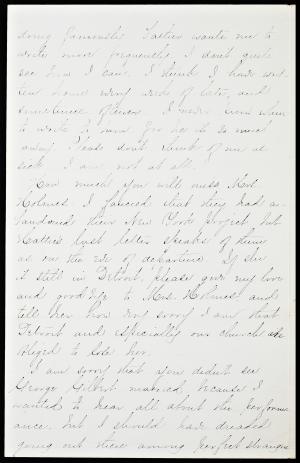 doing famously. Hattie wants me to
write more frequently. I don't quite
see how I can. I think I have writ-
ten home every week of late, and
sometimes oftener. I never know when
to write to
away. Please don't think of me as
sick. I am not at all.
How much you will miss Mrs.
Holmes. I fancied that they had a-
bandoned their New York project, but
Hattie's last letter speaks of them
as on the eve of departure. If she
is still in Detroit, please give my love
and good bye to Mrs. Holmes and
tell her how very sorry I am that
Detroit and especially our church are
obliged to lose her.
I am sorry that you didn't see
George Gilbert married because I
wanted to hear all about the perform-
ance, but I should have dreaded
going out there among perfect strangers